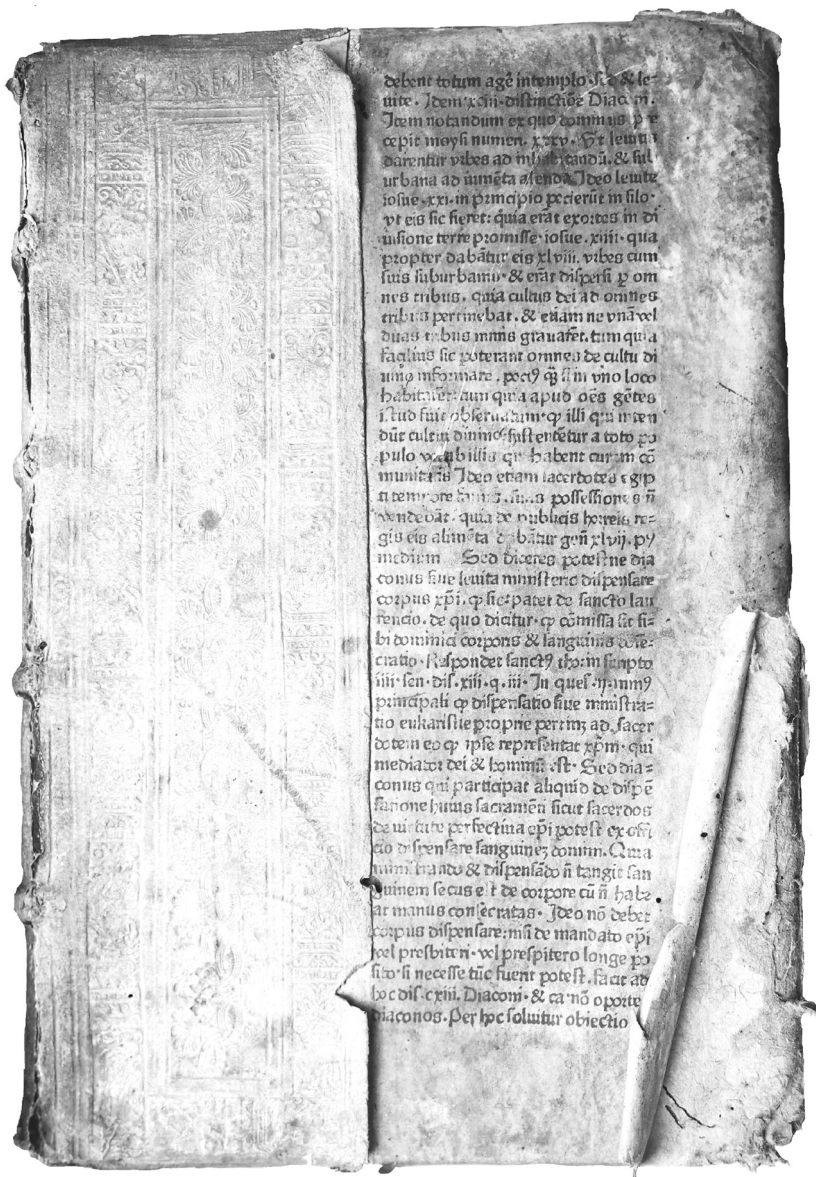 debent totum agẽ in templo. sic & le⸗
uite. Idem xciii. distinctiõe Diaconi.
Item notandum ex quo dominus pre
cepit moysi numeri. xxxv. Vt leuitis
darentur vrbes ad inhabitandũ. & sub
urbana ad iumẽta alenda. Ideo leuite
iosue. xxi. in principio pecierũt in silo.
vt eis sic fieret: quia erãt exortes in di
uisione terre promisse. iosue. xiiii. qua
propter dabãtur eis xlviii. vrbes cum
suis suburbanis. & erãt dispersi ꝑ om
nes tribus. quia cultus dei ad omnes
tribus pertinebat. & etiam ne vnã vel
duas tribus nimis grauarẽt. tum quia
facilius sic poterant omnes de cultu di
uino informare. pociꝰ qꝫ si in vno loco
habitarẽt: tum quia apud oẽs gẽtes
istud fuit obseruatum. ꝙ illi qui inten
dũt cultui diuino sustentẽtur a toto po
pulo velut illi qui habent curam cõ
munitatis Ideo etiam sacerdotes egip
ti tempore famis. suas possessiones ñ
vendebãt. quia de publicis horreis re⸗
gis eis alimẽta dabãtur geñ xlvij. pꝰ
medium Sed diceres potestne dia
conus siue leuita ministerio dispensare
corpus xp̃i. ꝙ sic: patet de sancto lau
rencio. de quo dicitur. ꝙ cõmissa sit si⸗
bi dominici corporis & sanguinis cõse⸗
cratio. Respondet sanctꝰ tho. in scripto
iiii. sen. dis. xiii. q. iii. In ques.
principali ꝙ dispensatio siue ministra⸗
tio eukaristie proprie pertinꝫ ad sacer
dotem eo ꝙ ipse representat xp̃m. qui
mediator dei & hominũ est. Sed dia⸗
conus qui participat aliquid de dispẽ
satione huius sacramẽti sicut sacerdos
de uirtute perfectiua ep̃i potest ex offi
cio dispensare sanguineꝫ domini. Quia
ministrando & dispensãdo ñ tangit san
guinem secus est de corpore cũ ñ habe⸗
at manus consecratas. Ideo nõ debet
corpus dispensare: nisi de mandato ep̃i
vel presbiteri. vel prespitero longe po
sito: si necesse tũc fuerit potest. facit ad
hoc dis. cxiii. Diaconi. & ca. nõ oporte
diaconos. Per hoc soluitur obiectio